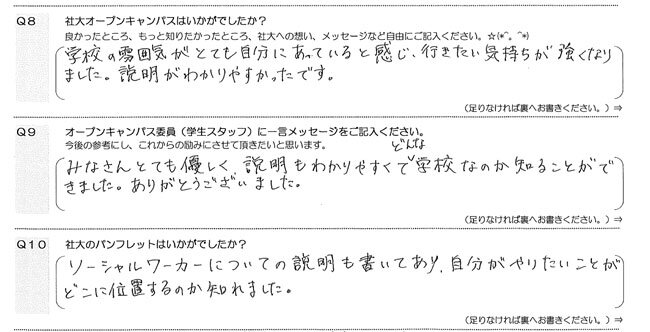 Q8 社大オープンキャンパスはいかがでしたか？
良かったところ、もっと知りたかったところ、社大への想い、メッセージなど自由にご記入ください。☆(*^。^*)
学校の雰囲気がとても自分にあっていると感じ、行きたい気持ちが強くなり
ました。説明がわかりやすかったです。
(足りなければ裏へお書きください。) ⇒
Q9 オープンキャンパス委員（学生スタッフ）に一言メッセージをご記入ください。
今後の参考にし、これからの励みにさせて頂きたいと思います。
どんな
みなさんとても優しく、説明もわかりやすくて学校なのか知ることがで
きました。ありがとうございました。
(足りなければ裏へお書きください。) ⇒
Q10 社大のパンフレットはいかがでしたか？
ソーシャルワーカーについての説明も書いてあり、自分がやりたいことが
どこに位置するのか知れました。
(足りなければ裏へお書きください。) ⇒